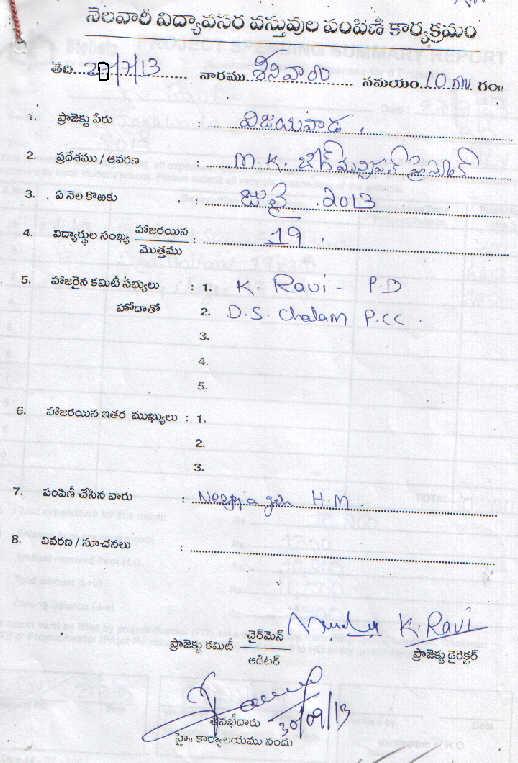 నెలవారీ విద్యావసర వస్తువుల పంపిణీ కార్యక్రమం
తేది 27/7/13 వారము శనివారం సమయం 10 AM గం॥
1. ప్రాజెక్టు పేరు : విజయవాడ .
2. ప్రదేశము / ఆవరణ : M.K. హైస్కూల్
3. ఏ నెల కొఱకు : జులై 2013
4. విద్యార్థుల సంఖ్య హాజరయిన / మొత్తము : 19 .
5. హాజరైన కమిటీ సభ్యులు : 1. K. Ravi - P.D
హోదాతో 2. D.S. Chalam P.CC .
3.
4.
5.
6. హాజరయిన ఇతర ముఖ్యులు : 1.
2.
3.
7. పంపిణీ చేసిన వారు : H.M.
8. వివరణ / సూచనలు :
K. Ravi
ప్రాజెక్టు కమిటీ చైర్‌మెన్ / ఆడిటర్ ప్రాజెక్టు డైరెక్టర్
30/09/13
హై॥ కార్యాలయము నందు